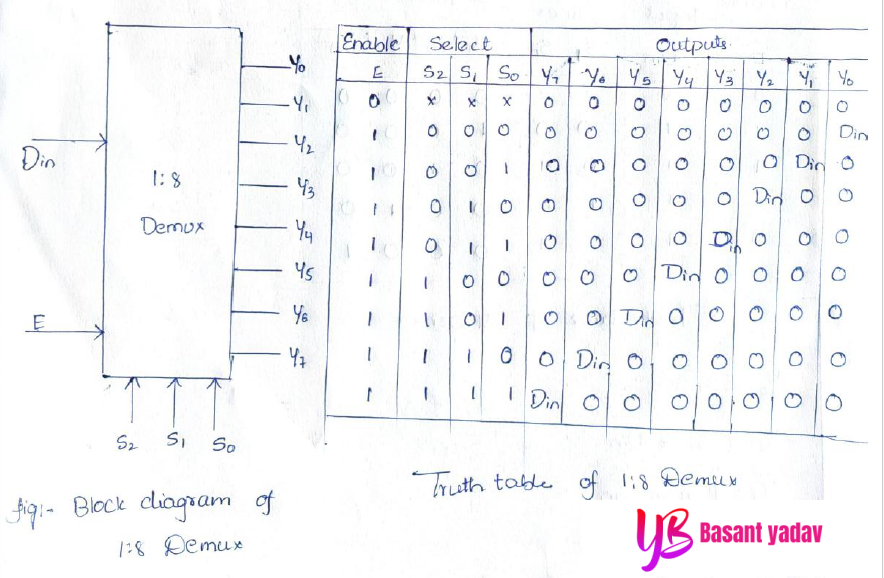 Din
E
1:8
Demux
Y0
Y1
Y2
Y3
Y4
Y5
Y6
Y7
S2 S1 S0
fig:- Block diagram of
1:8 Demux
Enable Select Outputs
E S2 S1 S0 Y7 Y6 Y5 Y4 Y3 Y2 Y1 Y0
0 x x x 0 0 0 0 0 0 0 0
1 0 0 0 0 0 0 0 0 0 0 Din
1 0 0 1 0 0 0 0 0 0 Din 0
1 0 1 0 0 0 0 0 0 Din 0 0
1 0 1 1 0 0 0 0 Din 0 0 0
1 1 0 0 0 0 0 Din 0 0 0 0
1 1 0 1 0 0 Din 0 0 0 0 0
1 1 1 0 0 Din 0 0 0 0 0 0
1 1 1 1 Din 0 0 0 0 0 0 0
Truth table of 1:8 Demux
YB Basant yadav